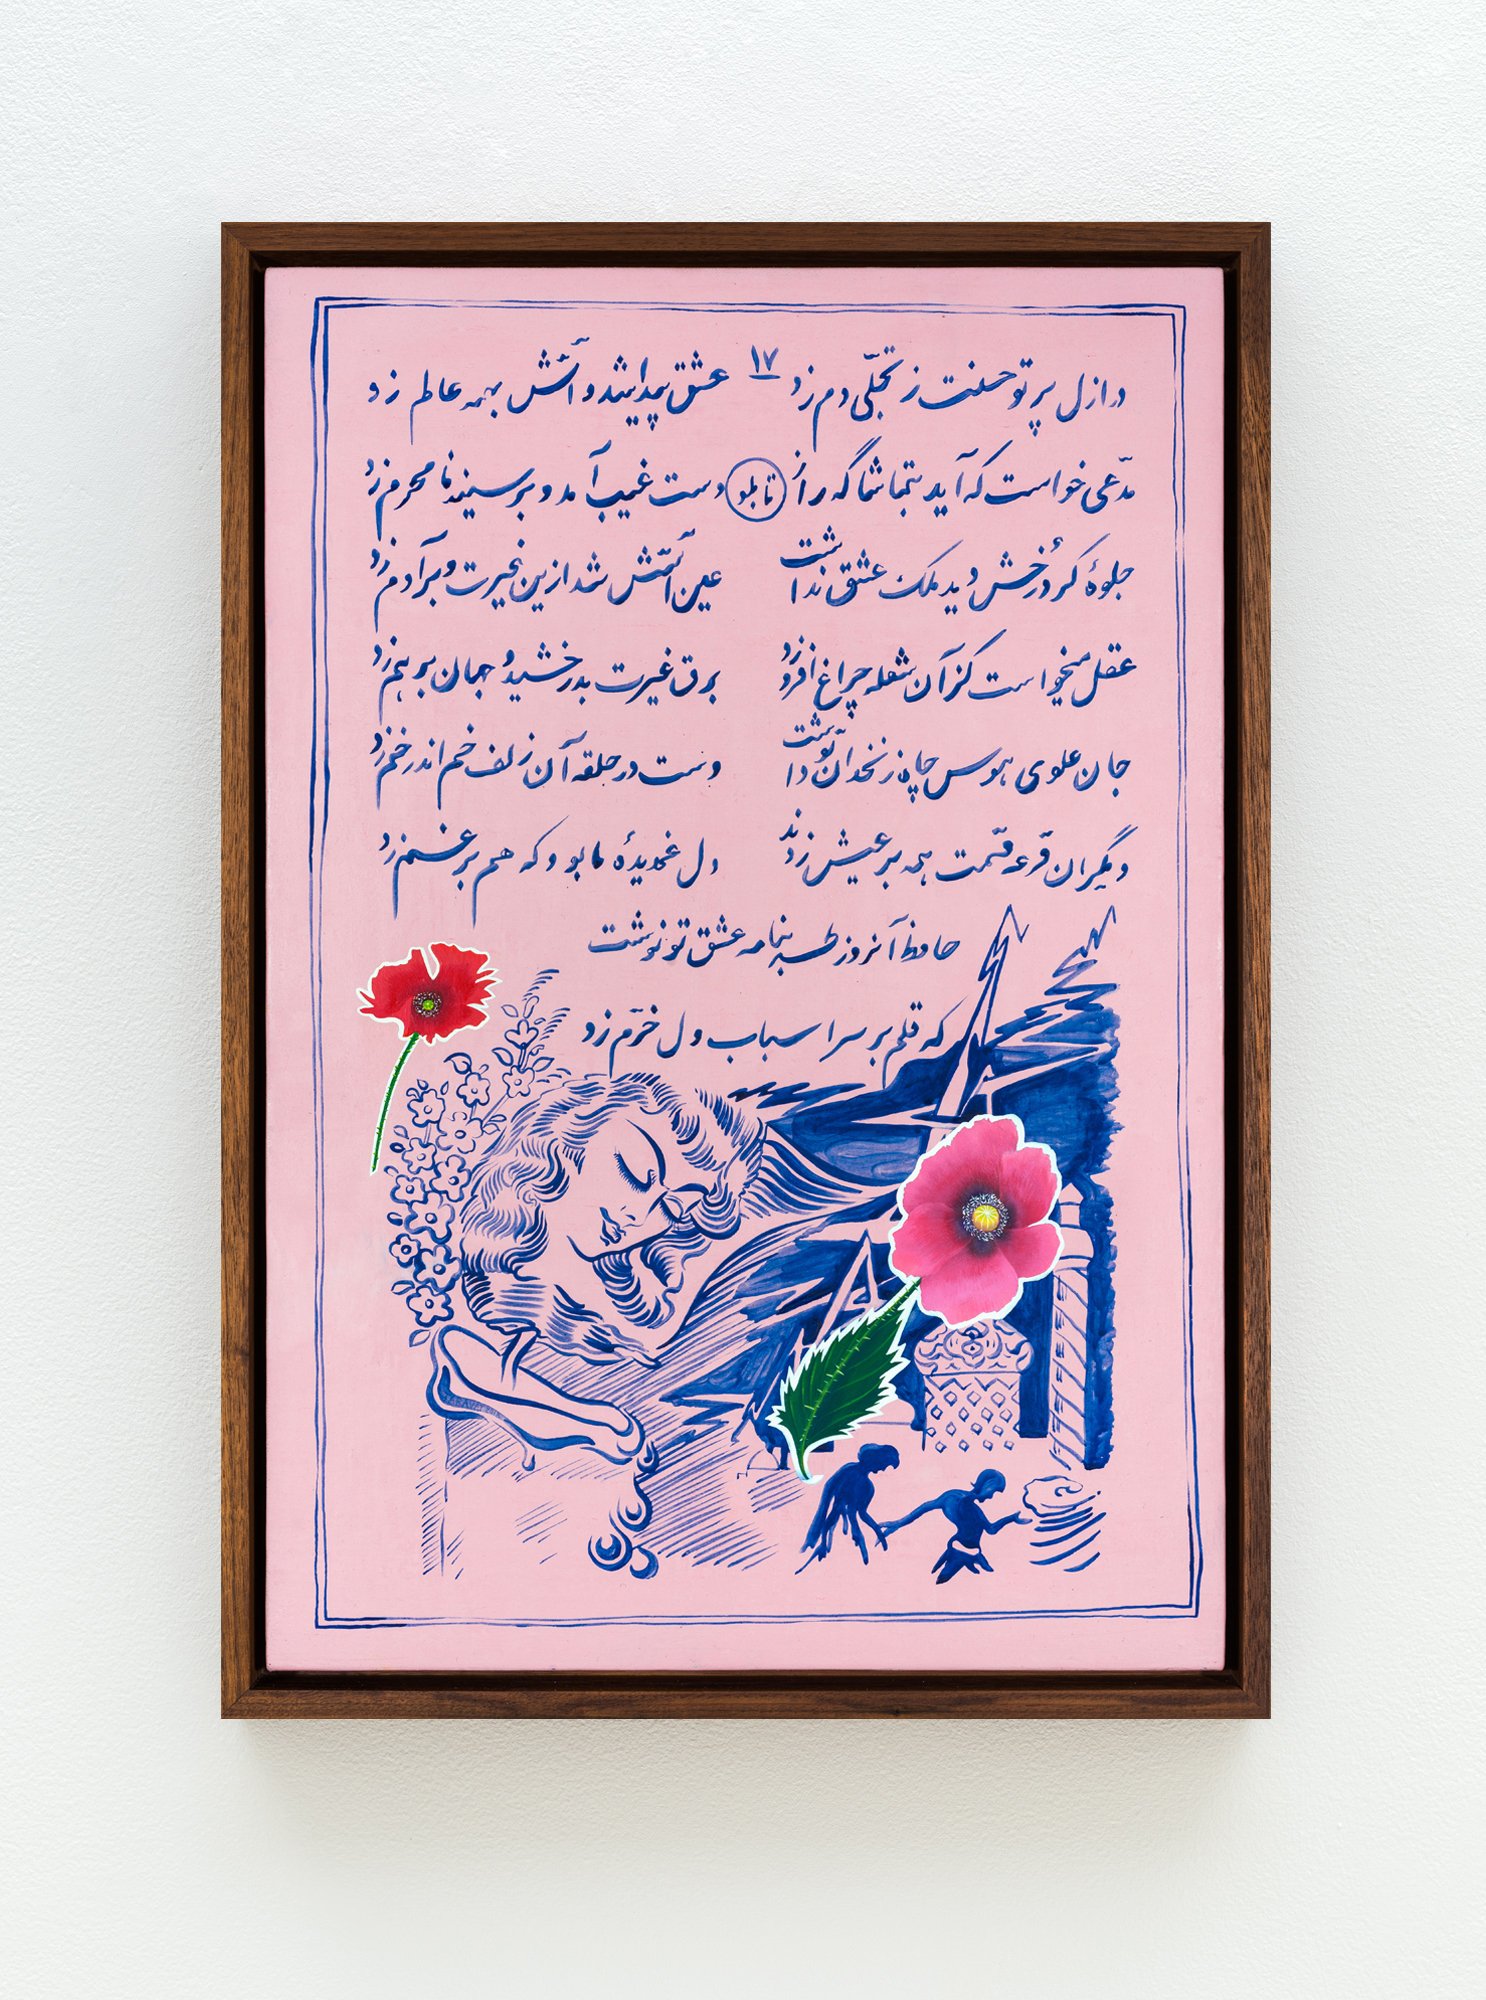 در ازل پرتو حسنت ز تجلّی دم زد ۱۷ عشق پیدا شد و آتش بهمه عالم زد
مدّعی خواست که آید بتماشاگه راز تابلو دست غیب آمد و بر سینه نامحرم زد
جلوهٔ کرد رُخش دید ملک عشق نداشت عین آتش شد ازین غیرت و بر آدم زد
عقل میخواست کزآن شعله چراغ افروزد برق غیرت بدرخشید و جهان برهم زد
جان علوی هوس چاه زنخدان تو داشت دست در حلقه آن زلف خم اندر خم زد
دیگران قرعه قسمت همه بر عیش زدند دل غمدیدهٔ ما بود که هم بر غم زد
حافظ آنروز طربنامه عشق تو نوشت
که قلم بر سر اسباب دل خرّم زد